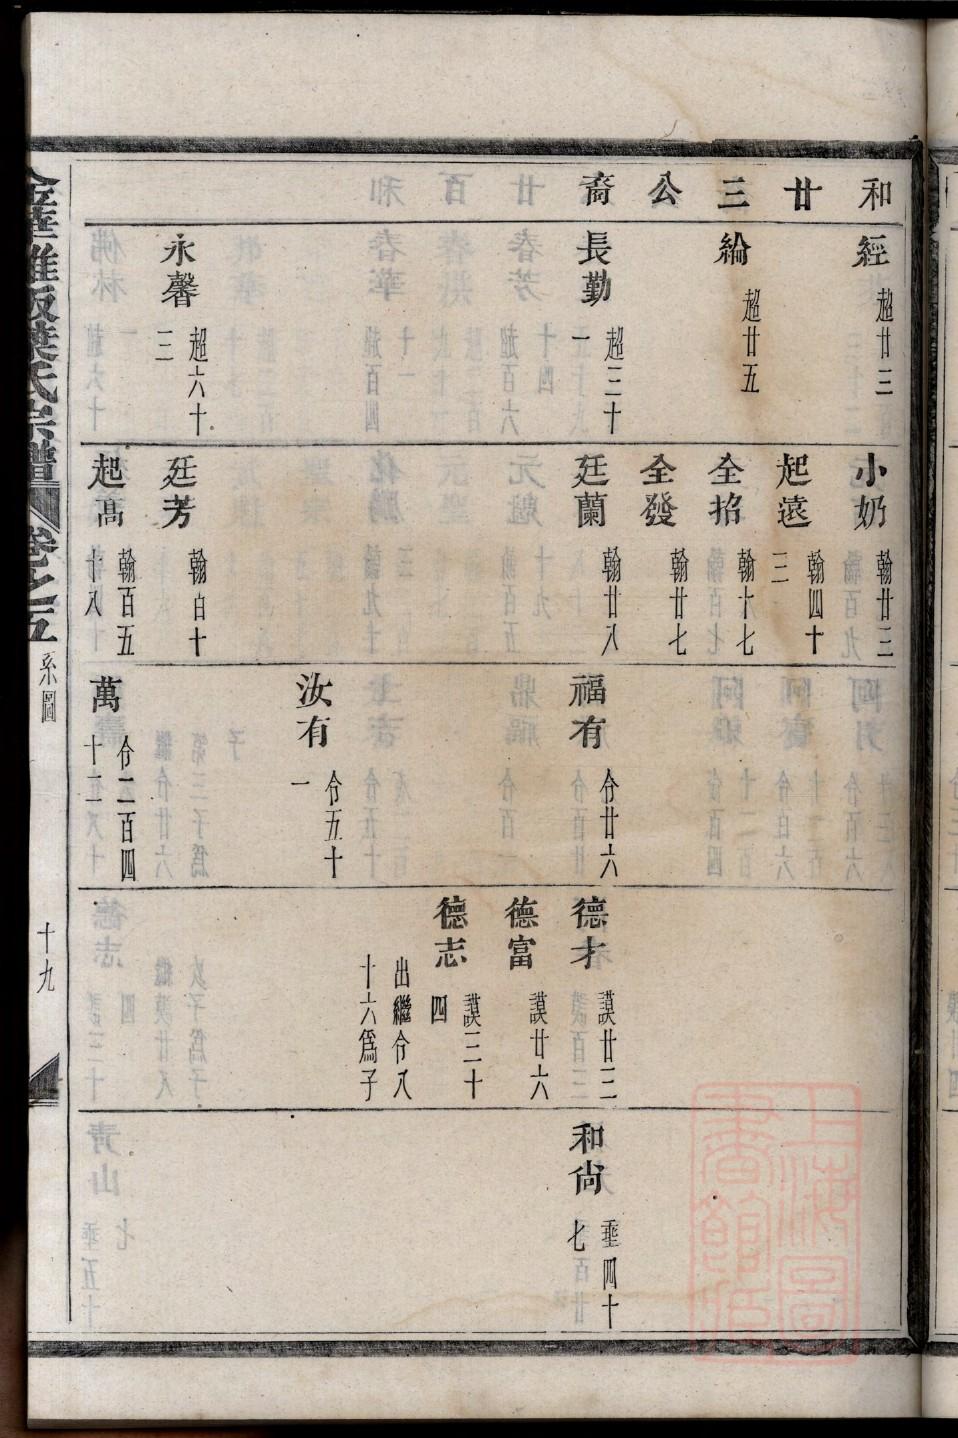 和廿三公裔
經 超廿三
綸 超廿五
長勤 超三十一
永馨 超六十三
小奶 翰廿三
起遠 翰四十三
全招 翰十七
全發 翰廿七
廷蘭 翰廿八
廷芳 翰白十
起高 翰百五十八
福有 仒廿六
汝有 仒五十一
萬 仒二百四十二
德才 謨廿三
德富 謨廿六
德志 謨三十四
出繼仒八十六爲子
和尙 垂四十七
金華雅畈葉氏宗譜 卷之五 系圖 十九